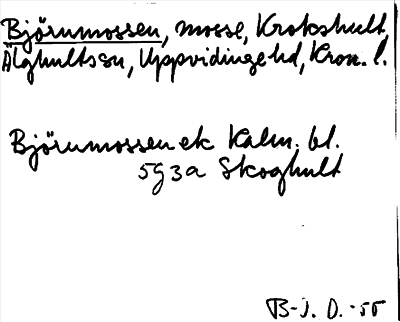 Björnmossen, mosse, Krokshult,
Älghults sn, Uppvidinge hd, Kron. l.
Björnmossen ek Kalm. bl.
5g3a Skoghult
B-J. O. -55